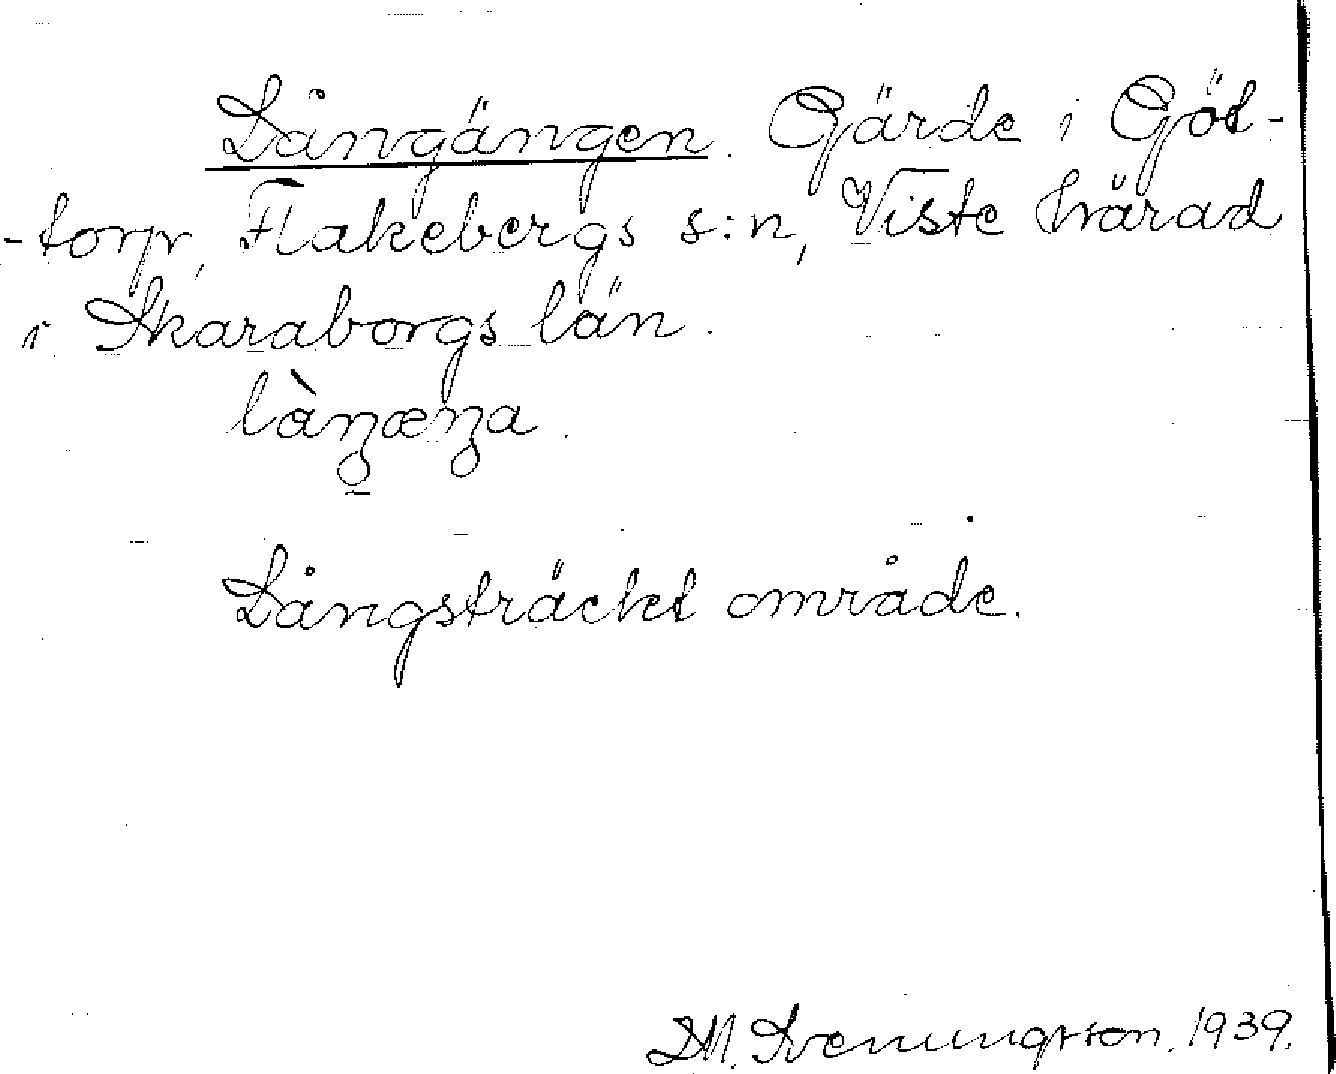 Långängen. Gärde i Göt-
-torp, Flakebergs s:n, Viste härad
i Skaraborgs län.
làŋæŋa.
Långsträckt område.
D.M. Svenungsson. 1939.